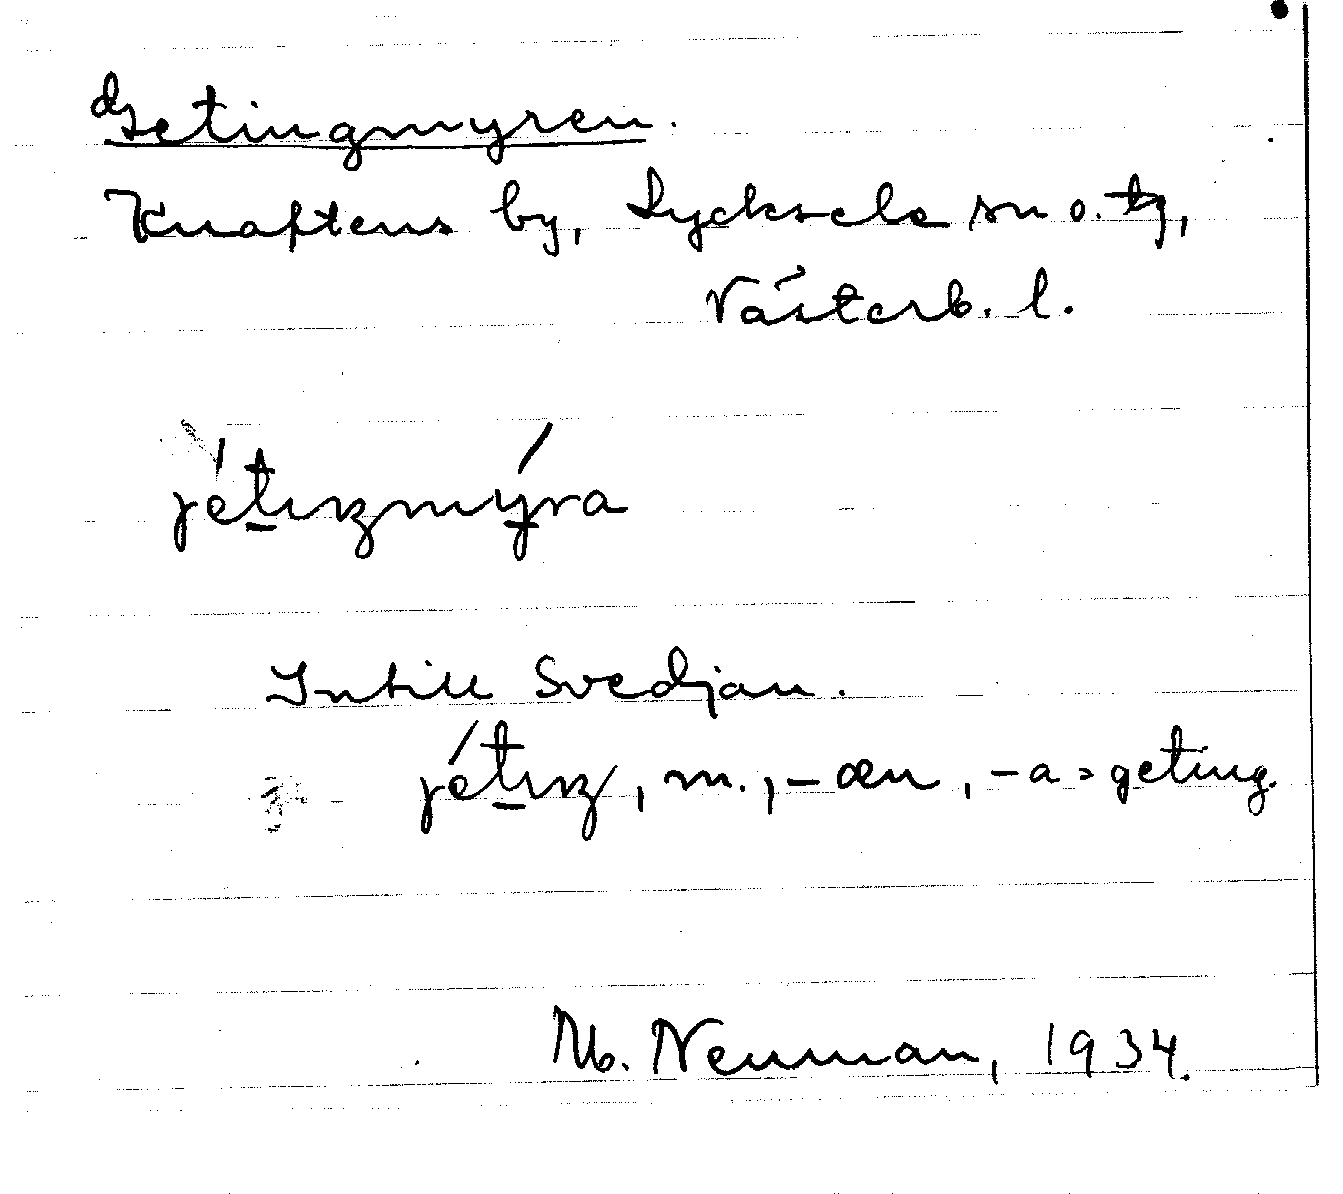 Getingmyren.
Knaftens by, Lycksele sn o. tg,
Västerb. l.
jétıŋmýra
Intill Svedjan.
jétıŋ, m., -æn, -a = geting.
M. Neuman, 1934.